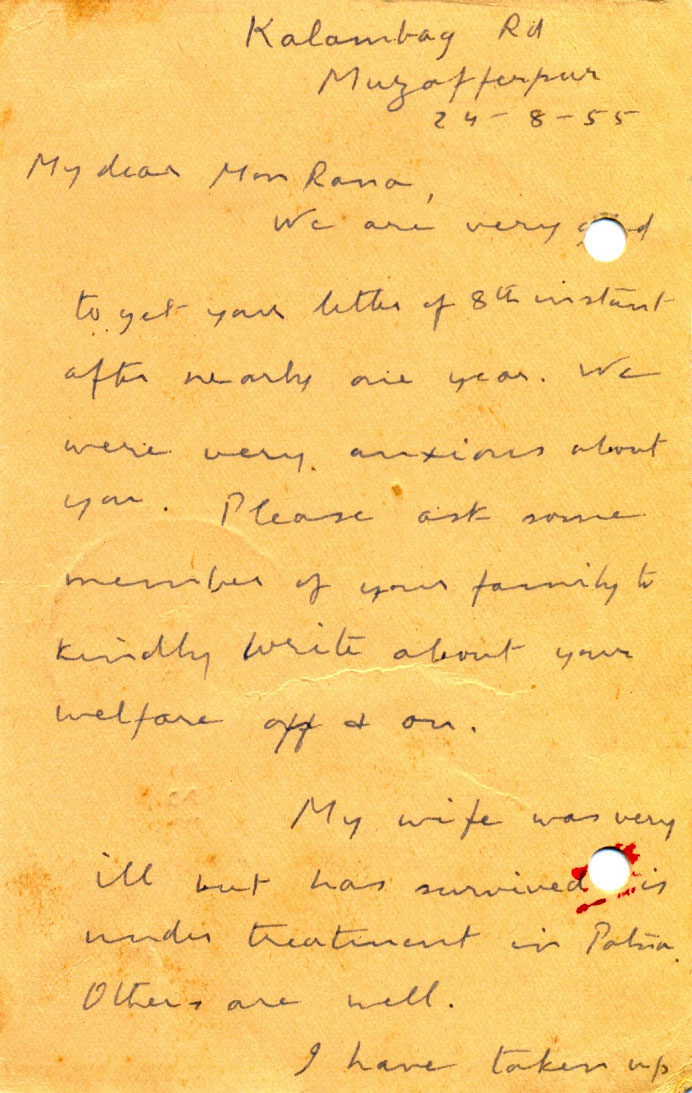 Kalambag Rd
Muzafferpur
24-8-55
My dear Mon Rana,
We are very
to get your letter of 8th instant
after nearly one year. We
were very anxious about
you. Please ask some
member of your family to
kindly write about your
welfare off & on.
My wife was very
ill but has survived is
under treatment in Patna.
Others are well.
I have taken up